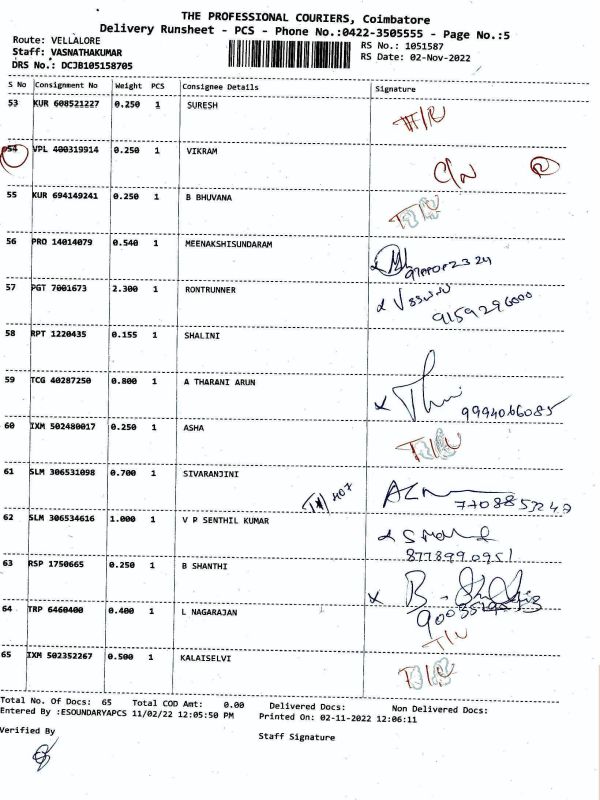 THE PROFESSIONAL COURIERS, Coimbatore
Delivery Runsheet - PCS - Phone No.:0422-3505555 - Page No.:5
Route: VELLALORE
RS No.: 1051587
Staff: VASNATHAKUMAR
RS Date: 02-Nov-2022
DRS No.: DCJB105158705
S No Consignment No Weight PCS Consignee Details Signature
53 KUR 608521227 0.250 1 SURESH
54 VPL 400319914 0.250 1 VIKRAM
C/N
55 KUR 694149241 0.250 1 B BHUVANA
56 PRO 14014079 0.540 1 MEENAKSHISUNDARAM
57 PGT 7001673 2.300 1 RONTRUNNER
9159296000
58 RPT 1220435 0.155 1 SHALINI
59 TCG 40287250 0.800 1 A THARANI ARUN
9994066085
60 IXM 502480017 0.250 1 ASHA
61 SLM 306531098 0.700 1 SIVARANJINI
407
62 SLM 306534616 1.000 1 V P SENTHIL KUMAR
8778990951
63 RSP 1750665 0.250 1 B SHANTHI
64 TRP 6460400 0.400 1 L NAGARAJAN
65 IXM 502352267 0.500 1 KALAISELVI
Total No. Of Docs: 65 Total COD Amt: 0.00 Delivered Docs: Non Delivered Docs:
Entered By :ESOUNDARYAPCS 11/02/22 12:05:50 PM Printed On: 02-11-2022 12:06:11
Verified By
Staff Signature